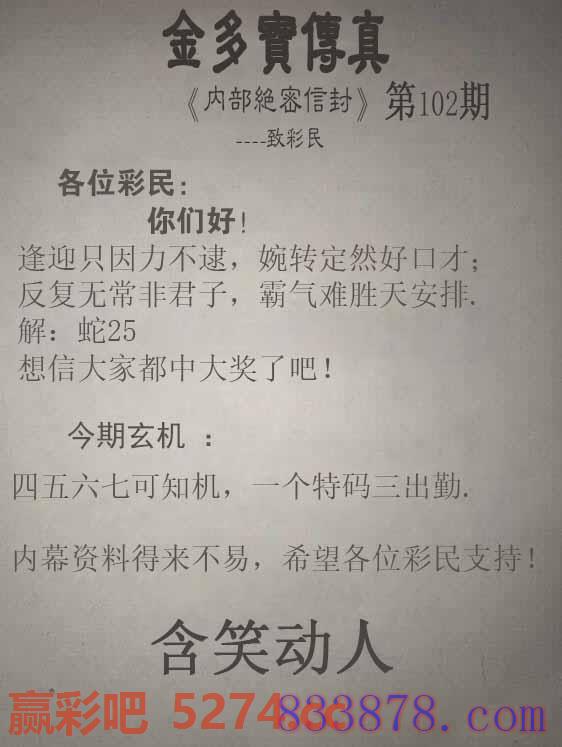 金多寶傳真
《内部絶密信封》第102期
----致彩民
各位彩民:
你们好!
逢迎只因力不逮，婉转定然好口才；
反复无常非君子，霸气难胜天安排.
解：蛇25
想信大家都中大奖了吧！
今期玄机 ：
四五六七可知机，一个特码三出勤.
内幕资料得来不易，希望各位彩民支持！
含笑动人
赢彩吧 5274.cc 833878.com